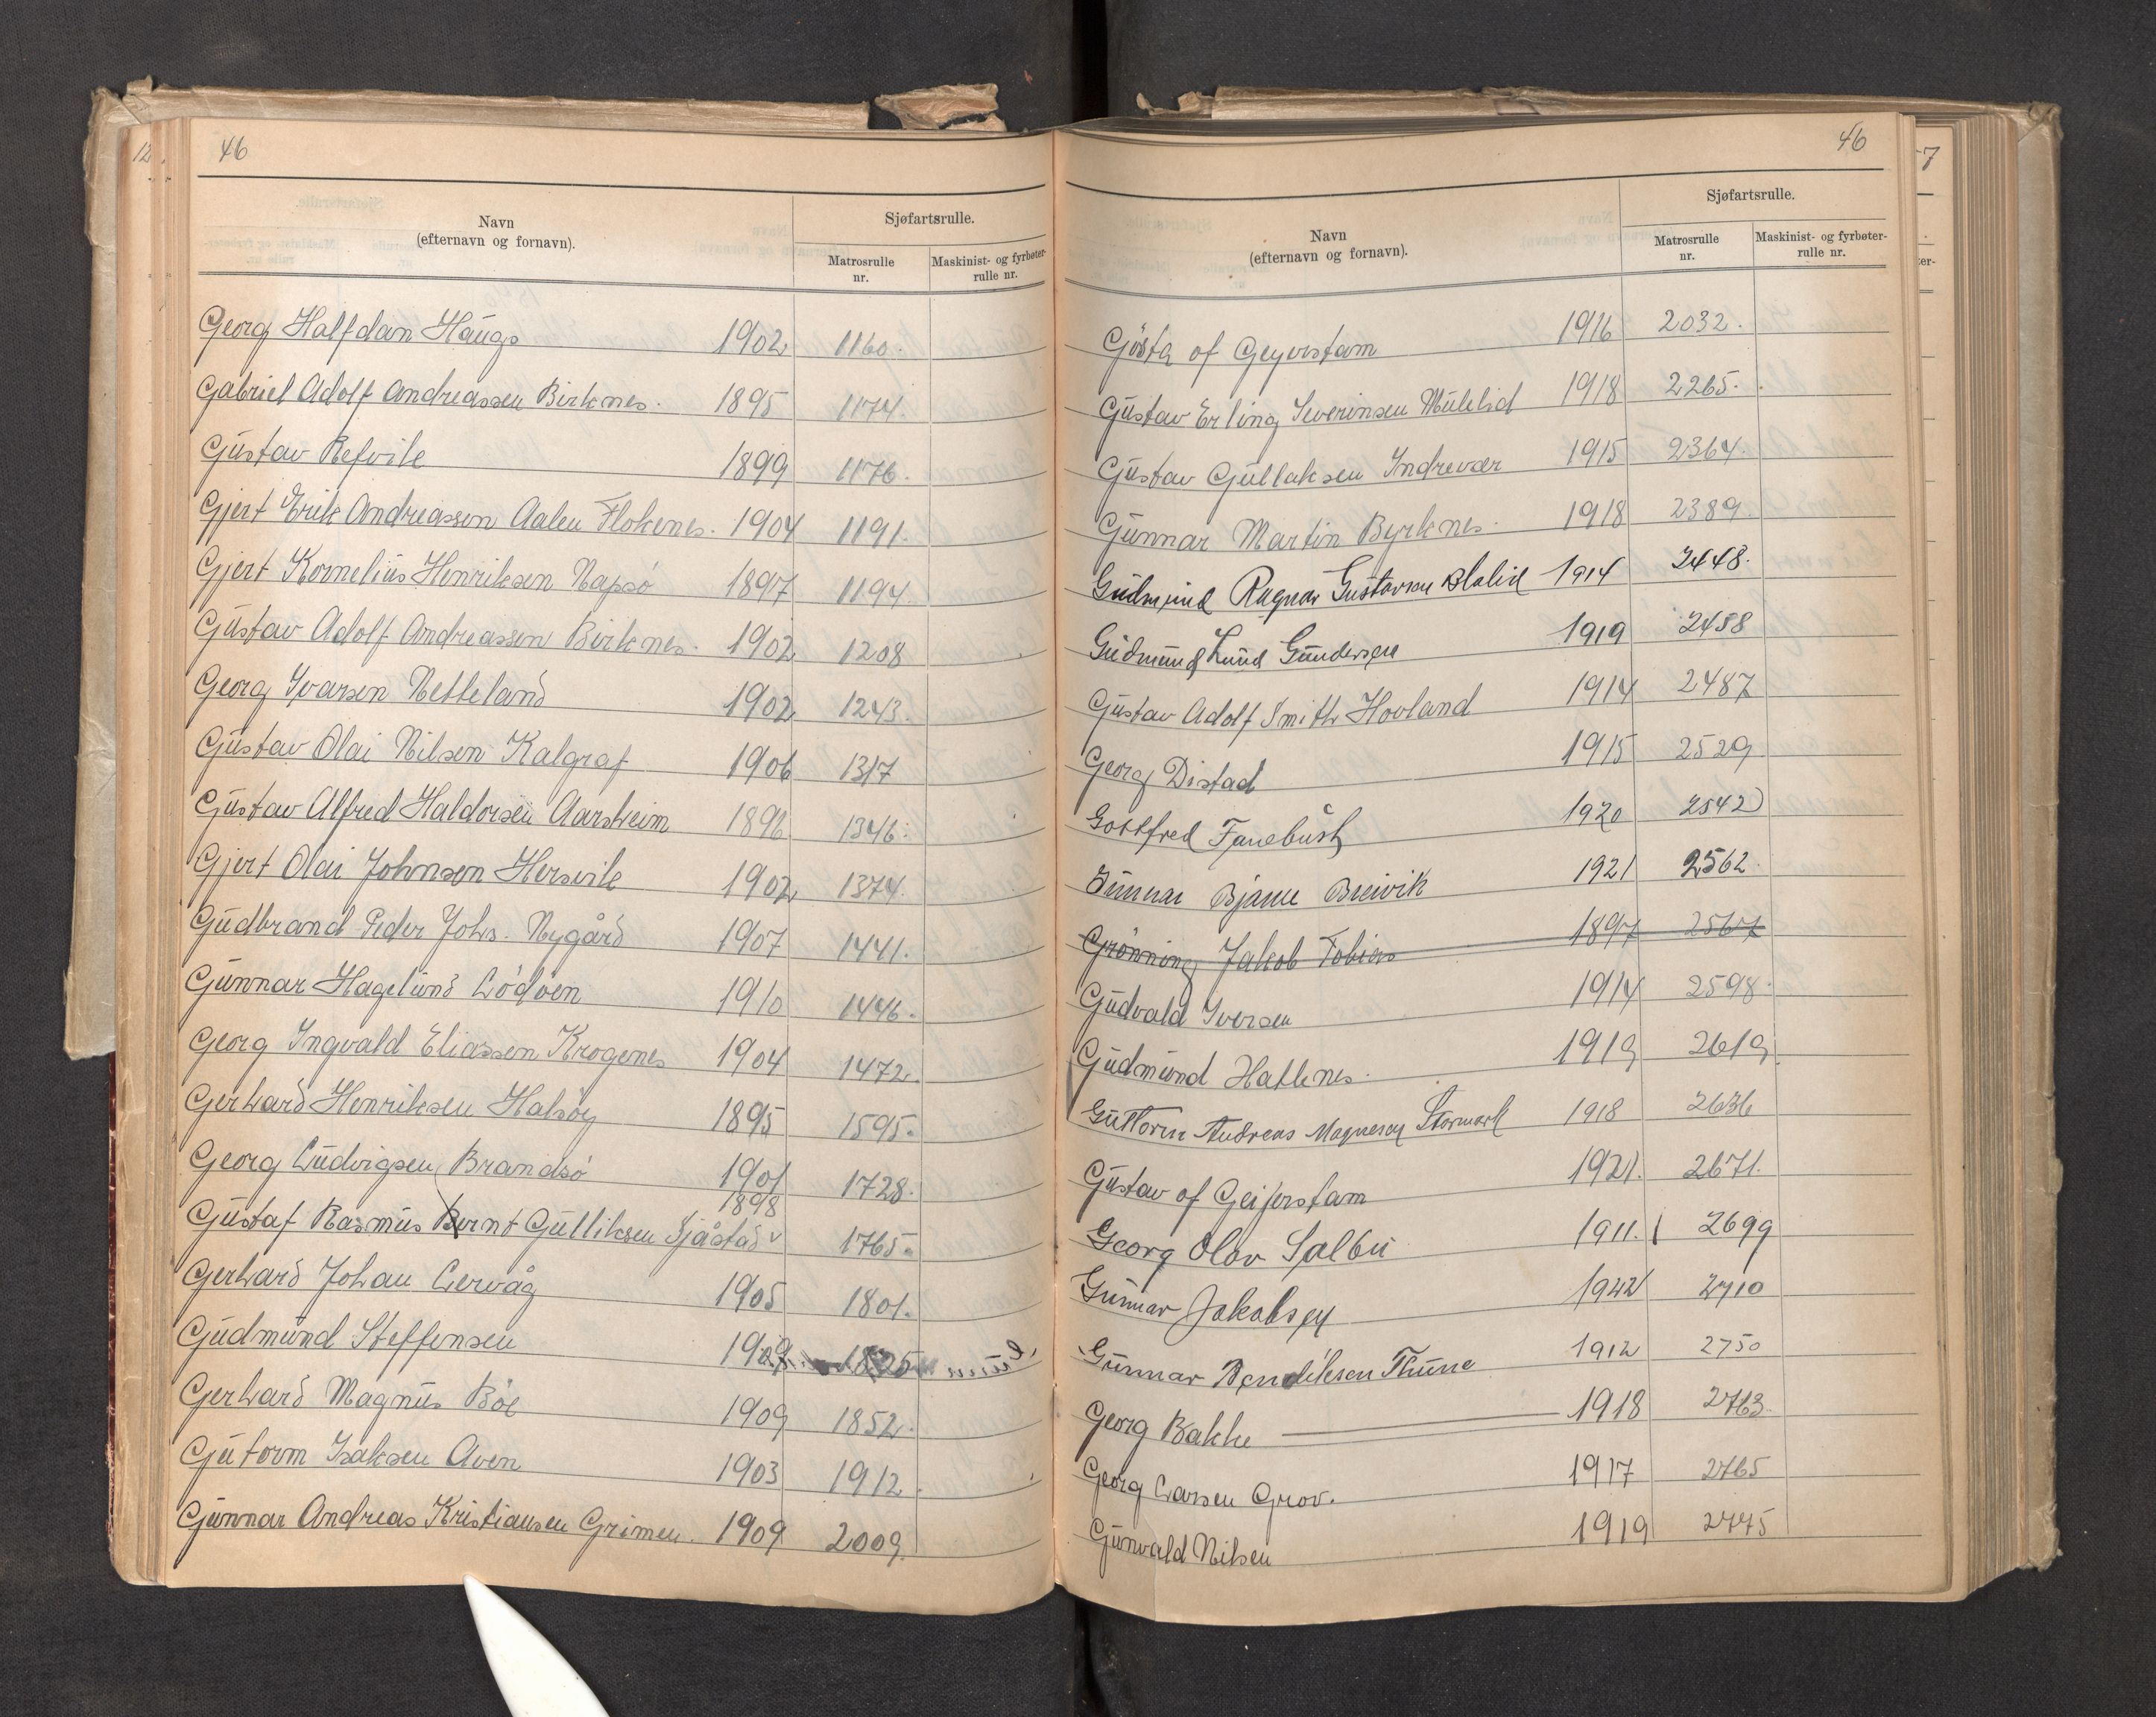 46
Navn
(efternavn og fornavn).
Sjøfartsrulle.
Matrosrulle
nr.
Maskinist- og fyrbøter-
rulle nr.
Georg Halfdan Haugs 1902 1160.
Gabriel Adolf Andreassen Birknes. 1895 1174.
Gustav Refvik 1899 1176.
Gjert Erik Andreassen Aalen Flokenes. 1904 1191.
Gjert Kornelius Henriksen Rapsö 1897 1194
Gustav Adolf Andreassen Birknes. 1902 1208
Georg Ivarsen Netteland 1902 1243.
Gustav Olai Nilsen Kalgraf 1906 1317
Gustav Alfred Haldorsen Aarsheim 1896 1346.
Gjert Olai Johnsen Hersvik 1902 1374.
Gudbrand Peder Johs. Nygård 1907 1441.
Gunnar Hagelund Lödöen 1910 1446.
Georg Ingvald Eliassen Krogenes 1904 1472.
Gerhard Henriksen Halsöy 1895 1595.
Georg Ludvigsen Brandsö 1901 1728.
1898
Gustaf Rasmus Bernt Gulliksen Sjåstad v 1765.
Gerhard Johan Lervåg 1905 1801.
Gudmund Steffensen 1825
Gerhard Magnus Böe 1909 1852.
Gutorm Isaksen Aven 1903 1912.
Gunnar Andreas Kristiansen Grimen. 1909 2009.
46
Navn
(efternavn og fornavn).
Sjøfartsrulle.
Matrosrulle
nr.
Maskinist- og fyrbøter-
rulle nr.
Gösta af Geyerstam 1916 2032.
Gustav Erling Severinsen Mulelid 1918 2265.
Gustav Gullaksen Indrevær 1915 2364.
Gunnar Martin Byrknes. 1918 2389.
Gudmund Ragnar Gustavsen Blalid 1914 2448.
Gudmund Lund Gundersen 1919 2458
Gustav Adolf Smith Hovland 1914 2487
Georg Distad 1915 2529
Gottfred Fanebust 1920 2542
Gunnar Bjarne Breivik 1921 2562.
Grönning Jakob Tobias 1897 2567
Gudvald Iversen 1914 2598.
Gudmund Hatlenes. 1919 2619.
Guttorm Andreas Magnesen Stormark 1918 2636
Gustav af Geijerstam 1921. 2671.
Georg Olav Salbu 1911. 2699
Gunnar Jakobsen 1922 2710
Gunnar Bendiksen Thune 1912 2750
Georg Bakke 1918 2763.
Georg Larsen Grov. 1917 2765
Gunvald Nilsen 1919 2775